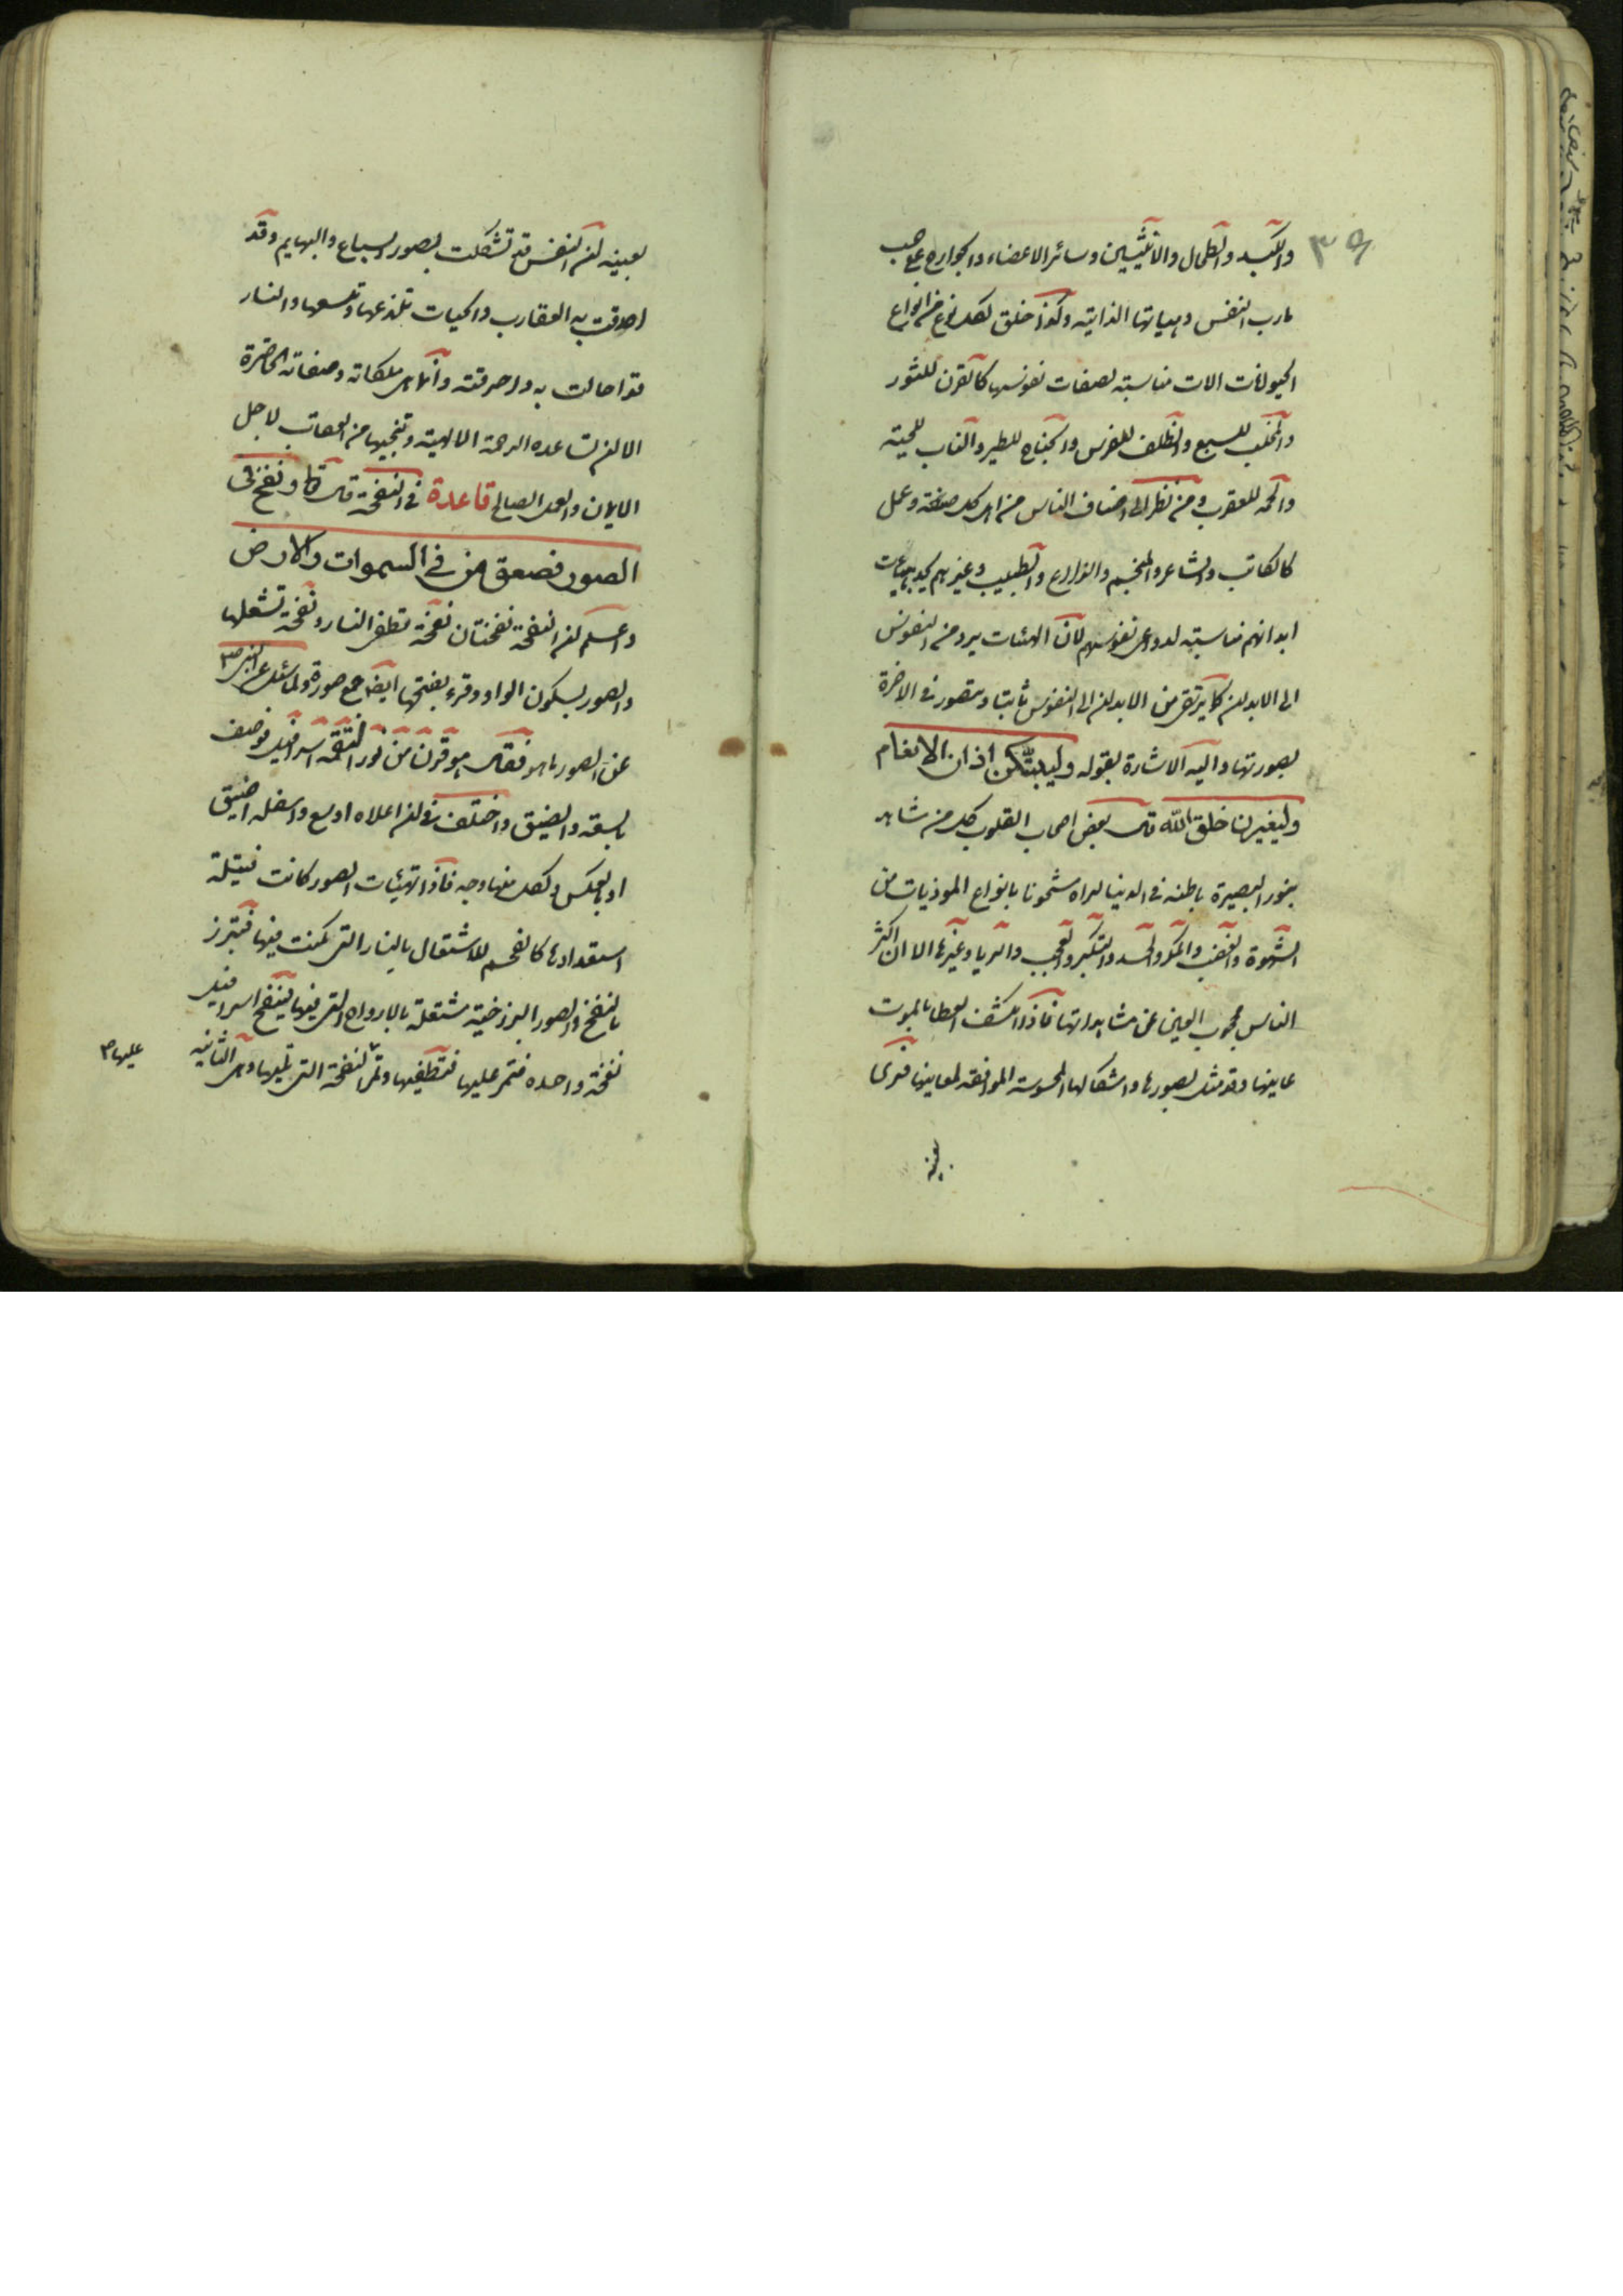 ٣٩
والكبد والطحال والانثيين وسائر الاعضاء والجوارح على حسب
مارب النفس وهياتها الذاتية وكذا خلق لكل نوع من انواع
الحيوانات الات مناسبة لصفات نفوسها كالقرن للثور
والمخلب للسبع والظلف للفرس والجناح للطير والناب للحية
والحمة للعقرب ومن نظر الى اصناف الناس من اهل كل صنعة وعمل
كالكاتب والشاعر والمنجم والزارع والطبيب وغيرهم يجد هيئات
ابدانهم مناسبة لدواعى نفوسهم لان الهئات يرد من النفوس
الى الابدان كما يرتقى من الابدان الى النفوس ثابتا ويتصور فى الاخرة
بصورتها واليه الاشارة بقوله وليبتكن اذان الانعام
وليغيرن خلق الله قال بعض اصحاب القلوب كل من شاهد
بنور البصيرة باطنه فى الدنيا لراه مشحونا بانواع الموذيات من
الشهوة والغضب والمكر والحسد والتكبر والعجب والريا وغيرها الا ان اكثر
الناس محجوب العين عن مشاهداتها فاذا انكشف الغطا بالموت
عاينها وقد تمثل بصورها واشكالها المحسوسة الموافقة لمعانيها فيرى
بعينه
بعينه ان النفس قد تشكلت بصور السباع والبهايم وقد
احدقت به العقارب والحيات تلذعها وتلسعها والنار
قد احالت به واحرقته وانما هى ملكاته وصفاته الحاضرة
الا ان تساعده الرحمة الالهية وتنجيها من العقاب لاجل
الايمان والعمل الصالح قاعدة فى النفخة قال تعالى ونفخ فى
الصور فصعق من فى السموات والارض
واعلم ان النفخة نفختان نفخة تطفى النار ونفخة تشعلها
والصور بسكون الواو وقرء بفتحها ايضا جمع صورة ولما سئل عن النبى ص
عن الصور ما هو فقال هو قرن من نور التقمه اسرافيل فوصف
بالسعة والضيق واختلف فى ان اعلاه اوسع واسفله اضيق
او بالعكس ولكل منها وجه فاذا تهيئات الصور كانت فتيلة
استعدادها كالفحم للاشتعال بالنار التى كمنت فيها فتبرز
بالنفخ والصور البرزخية مشتعلة بالارواح التى فيها فينفخ اسرافيل
نفخة واحده فتمر عليها فتطفيها وتمر النفخة التى تليها وهى الثانية
عليها ص